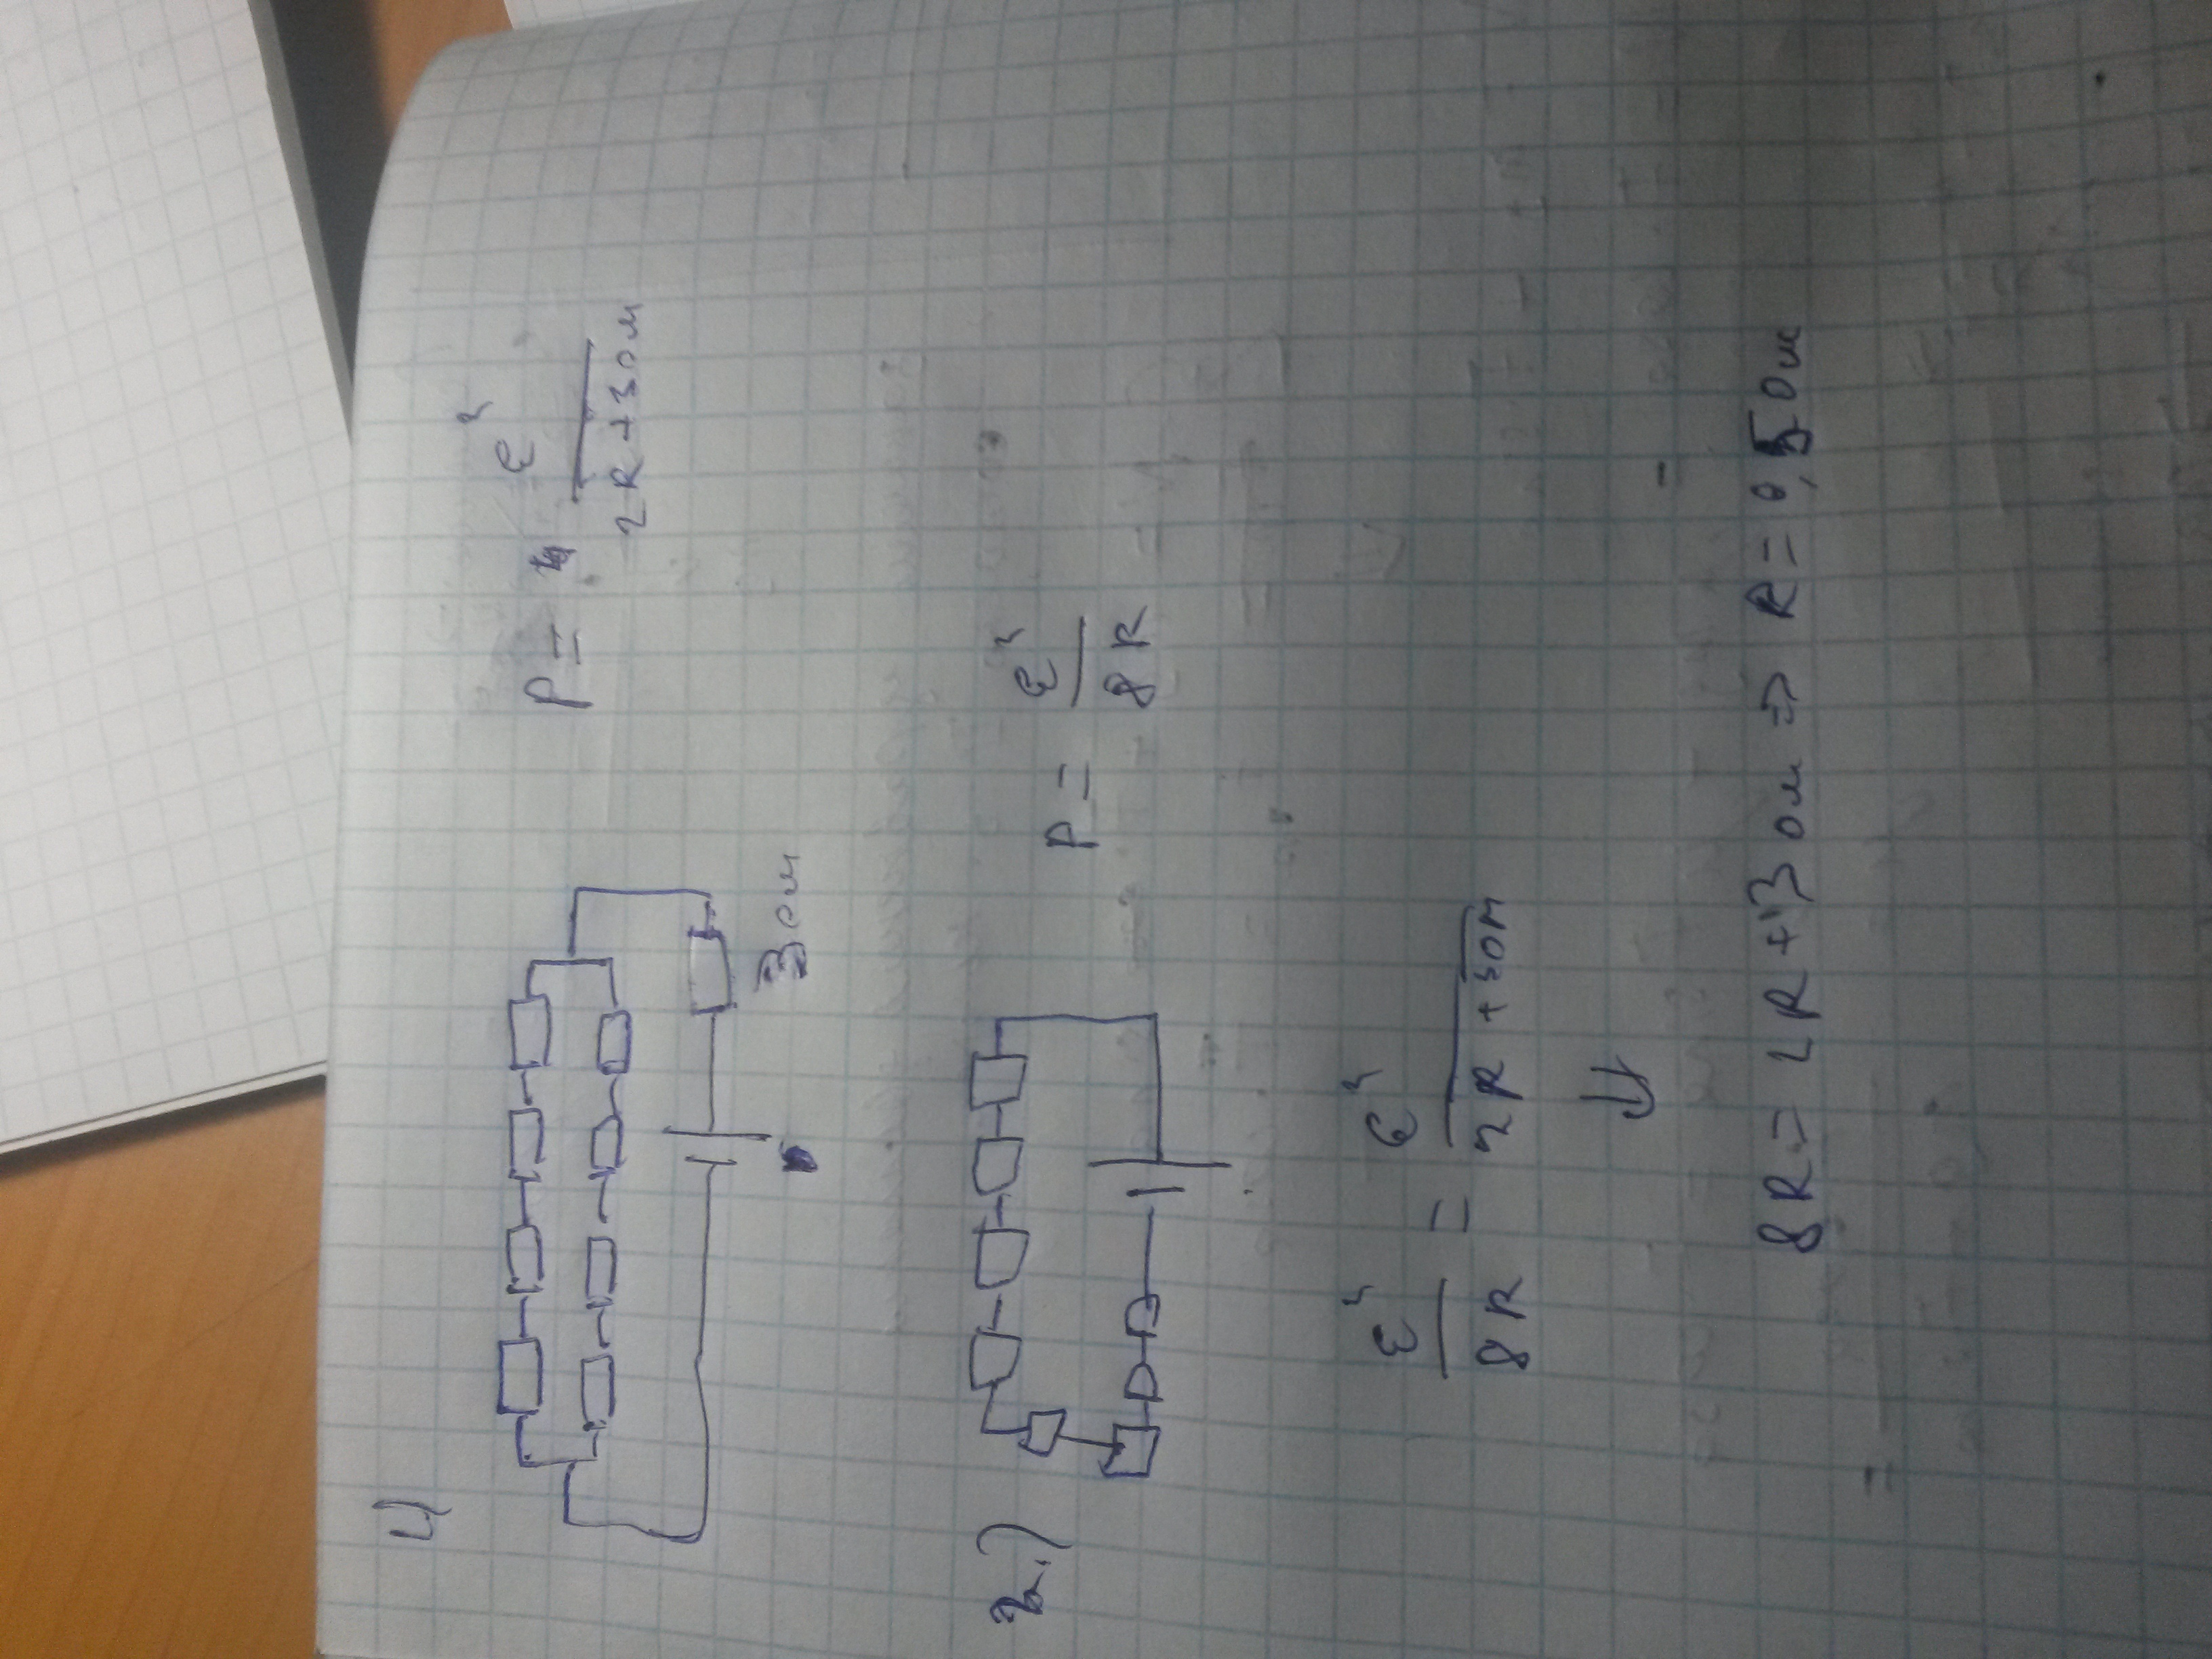 4)
P = ε²/(2R+3Ом)
3Ом
2.)
P = ε²/(8R)
ε²/(8R) = ε²/(2R+3Ом)
⇓
8R = 2R+3Ом ⇒ R = 0,5Ом